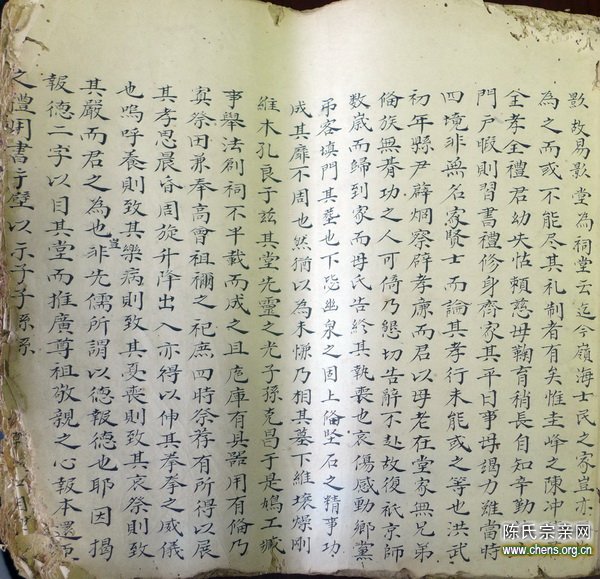 影故易影堂為祠堂云迄今嶺海士民之家豈亦
為之而或不能尽其礼制者有矣惟圭峰之陳冲
全孝全禮君幼失怙頼慈母鞠育稍長自知辛勤
門户暇則習書禮修身齊家其平日事母竭力雖當時
四境非無名家賢士而論其孝行未能或之等也洪武
初年縣尹辟烟察辟孝廉而君以母老在堂家無兄弟
倫族無膂功之人可倚乃懇切告辭不赴故復祇京師
数歲而歸到家而母氏告終其執喪也哀傷感動鄉黨
吊客填門其塟也下恐幽泉之固上俻墜石之精事功
成其靡不周也然猶以為未慊乃相其墓下維壤燥剛
維木孔良于兹其堂先靈之光子孫克昌于是鳩工
事舉法剏祠不半載而成之且庖庫有具器用有俻乃
寘祭田朩奉高曾祖禰之祀庶四時祭荐有所得以展
其孝思晨昏周旋升降出入亦得以伸其拳拳之威儀
也嗚呼養則致其樂病則致其憂喪則致其哀祭則致
其嚴而君之為也豈非先儒所謂以德報德也耶因揭
報德二字以目其堂而推廣尊祖敬親之心報本還
之禮用書于壁以示子子孫孫
陈氏宗亲网
www.chens.org.cn